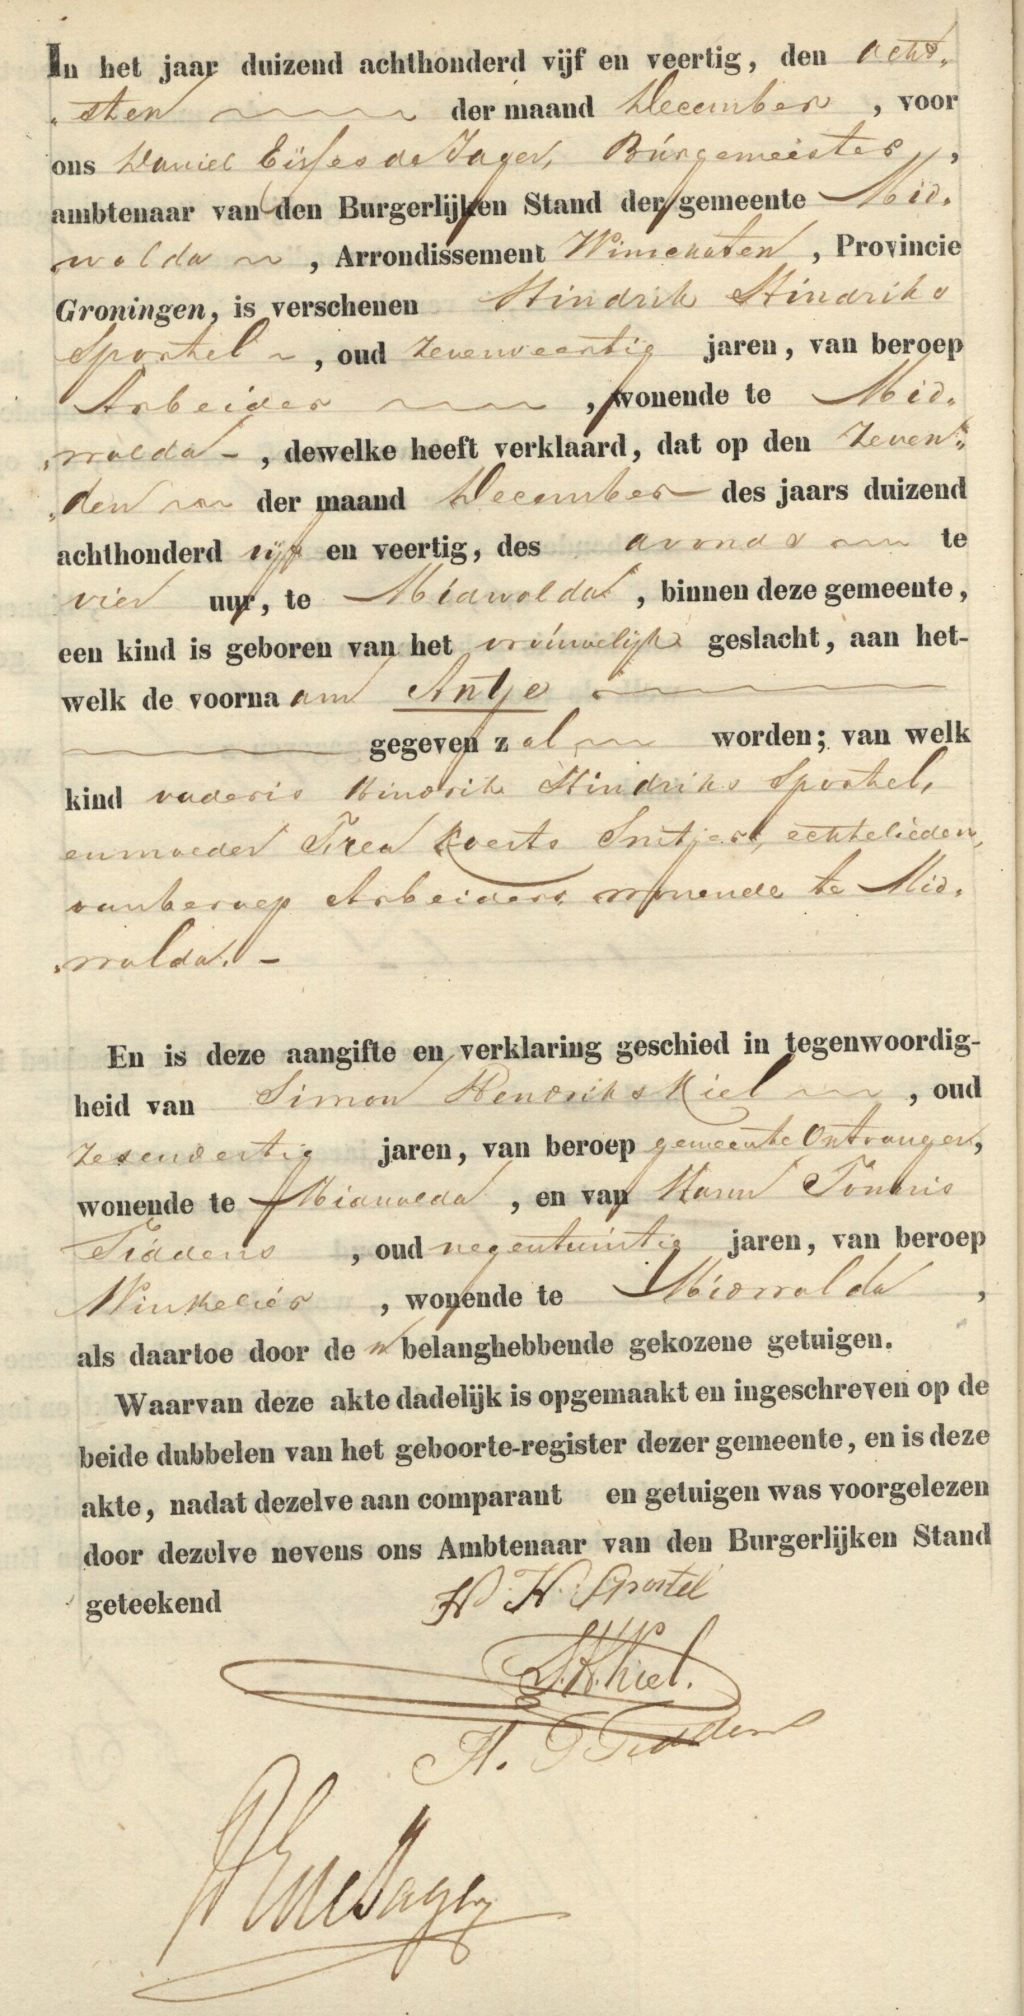 In het jaar duizend achthonderd vijf en veertig, den acht-
sten der maand December, voor
ons Daniel Eisses de Jager, Burgemeester,
ambtenaar van den Burgerlijken Stand der gemeente Mid-
wolda, Arrondissement Winschoten, Provincie
Groningen, is verschenen Hindrik Hindriks
Sportel, oud zevenveertig jaren, van beroep
Arbeider, wonende te Mid-
wolda, dewelke heeft verklaard, dat op den zeven-
den der maand December des jaars duizend
achthonderd vijf en veertig, des avonds te
vier uur, te Midwolda, binnen deze gemeente,
een kind is geboren van het vrouwelijk geslacht, aan het-
welk de voornaam Antje
gegeven zal worden; van welk
kind vader is Hindrik Hindriks Sportel,
en moeder Koerts echtelieden,
van beroep Arbeiders, wonende te Mid-
wolda.
En is deze aangifte en verklaring geschied in tegenwoordig-
heid van Simon Hendriks Kiel, oud
zesenveertig jaren, van beroep gemeente Ontvanger,
wonende te Midwolda, en van Harm Tonnis
Tiddens, oud negentwintig jaren, van beroep
Winkelier, wonende te Midwolda,
als daartoe door den belanghebbende gekozene getuigen.
Waarvan deze akte dadelijk is opgemaakt en ingeschreven op de
beide dubbelen van het geboorte-register dezer gemeente, en is deze
akte, nadat dezelve aan comparant en getuigen was voorgelezen
door dezelve nevens ons Ambtenaar van den Burgerlijken Stand
geteekend H. H. Sportel
S. H. Kiel.
H. T Tiddens
D E de Jager